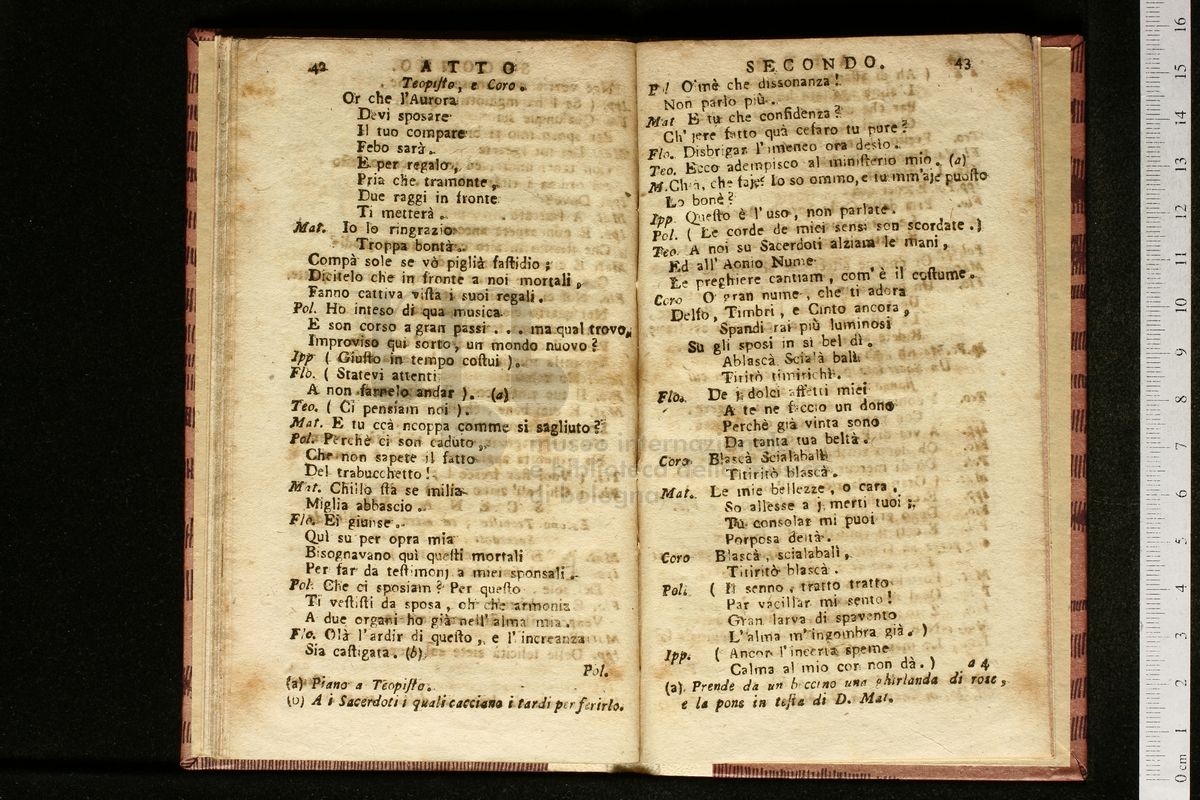 42 ATTO
Teopisto, e Coro.
Or che l'Aurora
Devi sposare
Il tuo compare
Febo sarà.
E per regalo,
Pria che tramonte,
Due raggi in fronte
Ti metterà.
Mat. Io lo ringrazio
Troppa bontà.
Compà sole se vò piglià fastidio;
Dicitelo che in fronte a noi mortali,
Fanno cattiva vista i suoi regali.
Pol. Ho inteso di qua musica
E son corso a gran passi . . . ma qual trovo,
Improviso qui sorto, un mondo nuovo?
Ipp ( Giusto in tempo costui ).
Flo. ( Statevi attenti
A non farnelo andar ). (a)
Teo. ( Ci pensiam noi ).
Mat. E tu ccà ncoppa comme si sagliuto?
Pol. Perchè ci son caduto,
Che non sapete il fatto
Del trabucchetto!
Mat. Chillo sta se milia
Miglia abbascio.
Flo. Ei giunse.
Quì su per opra mia
Bisognavano quì questi mortali
Per far da testimonj a miei sponsali.
Pol. Che ci sposiam? Per questo
Ti vestisti da sposa, oh che armonia
A due organi ho già nell'alma mia.
Flo. Olà l'ardir di questo, e l'increanza
Sia castigata. (b)
Pol.
(a) Piano a Teopisto.
(b) A i Sacerdoti i quali cacciano i tardi per ferirlo.
SECONDO. 43
Pol O'mè che dissonanza!
Non parlo più.
Mat E tu che confidenza?
Ch' jere fatto quà cesaro tu pure?
Flo. Disbrigar l'imeneo ora desio.
Teo. Ecco adempisco al ministerio mio. (a)
M. Chià, che faje? Io so ommo, e tu mm'aje puosto
Lo bonè?
Ipp. Questo è l'uso, non parlate.
Pol. ( Le corde de miei sensi son scordate. )
Teo. A noi su Sacerdoti alziam le mani,
Ed all' Aonio Nume
Le preghiere cantiam, com' è il costume.
Coro O gran nume, che ti adora
Delfo, Timbri, e Cinto ancora,
Spandi rai più luminosi
Su gli sposi in sì bel dì.
Ablascà Scialà balì
Titirò timirichì.
Flo. De j dolci affetti miei
A te ne faccio un dono
Perchè già vinta sono
Da tanta tua beltà.
Coro Blascà Scialabalì
Titiritò blascà.
Mat. Le mie bellezze, o cara,
So allesse a j merti tuoi;
Tu consolar mi puoi
Porposa deità.
Coro Blascà, scialabalì,
Titiritò blascà.
Poli. ( Il senno, tratto tratto
Par vacillar mi sento!
Gran larva di spavento
L'alma m'ingombra già. )
Ipp. ( Ancor l'incerta speme
Calma al mio cor non dà. ) a 4
(a) Prende da un baccino una ghirlanda di rose,
e la pone in testa di D. Mat.
museo internazi
e biblioteca della
di bologna
0 cm 1 2 3 4 5 6 7 8 9 10 11 12 13 14 15 16